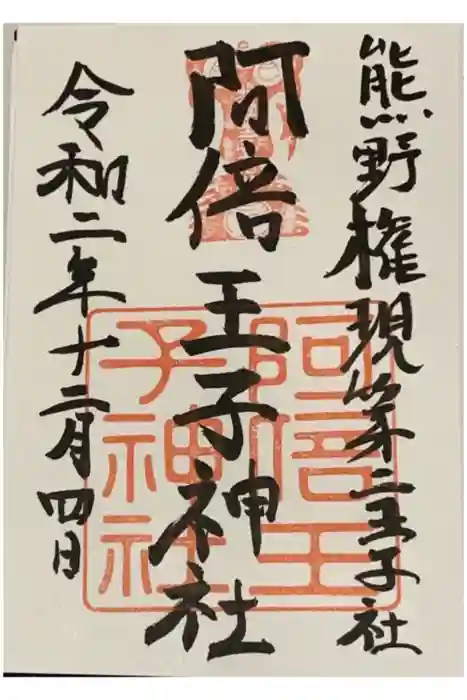 熊野権現第二王子社
阿倍王子神社
阿倍王
子神社
令和二年十二月四日